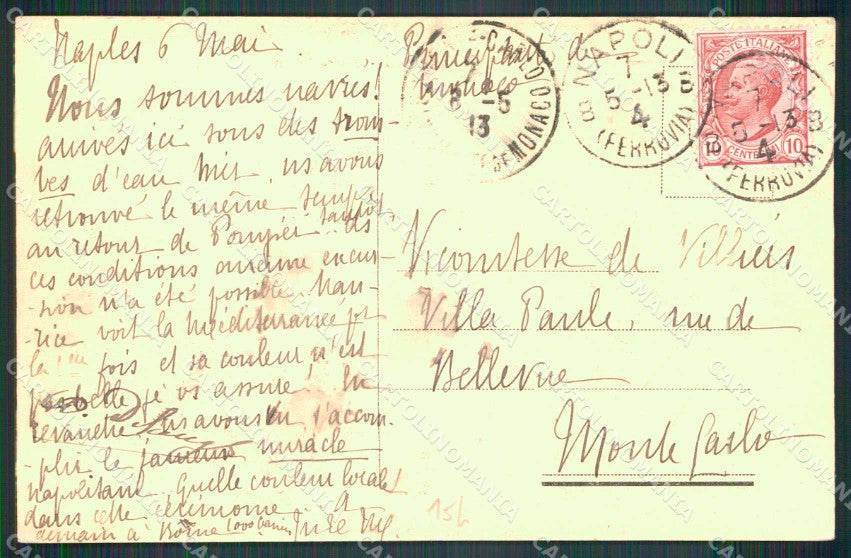 Naples 6 Mai
Nous sommes navrés!
arrivés ici sous des trom-
bes d'eau hier, ns avons
retrouvé le même temps
au retour de Pompéi. ds
ces conditions aucune excur-
-sion n'a été possible. Mau-
rice voit la Méditerranée pr
la 1ère fois et sa couleur n'est
pas belle je vs assure! En
revanche, ns avons vu s'accom-
-plir le fameux miracle
napolitain. Quelle couleur locale
dans cette cérémonie. A
demain à Rome 1000
Principauté de
Monaco
MONTE-CARLO
8-5
13
PTE DE MONACO
NAPOLI
7-5-13
4
(FERROVIA)
NAPOLI
7-5-13
4
(FERROVIA)
POSTE ITALIANE
CENTESIMI 10
Vicomtesse de Villiers
Villa Paule, rue de
Bellevue
Monte Carlo
15L
CARTOLINOMANIA